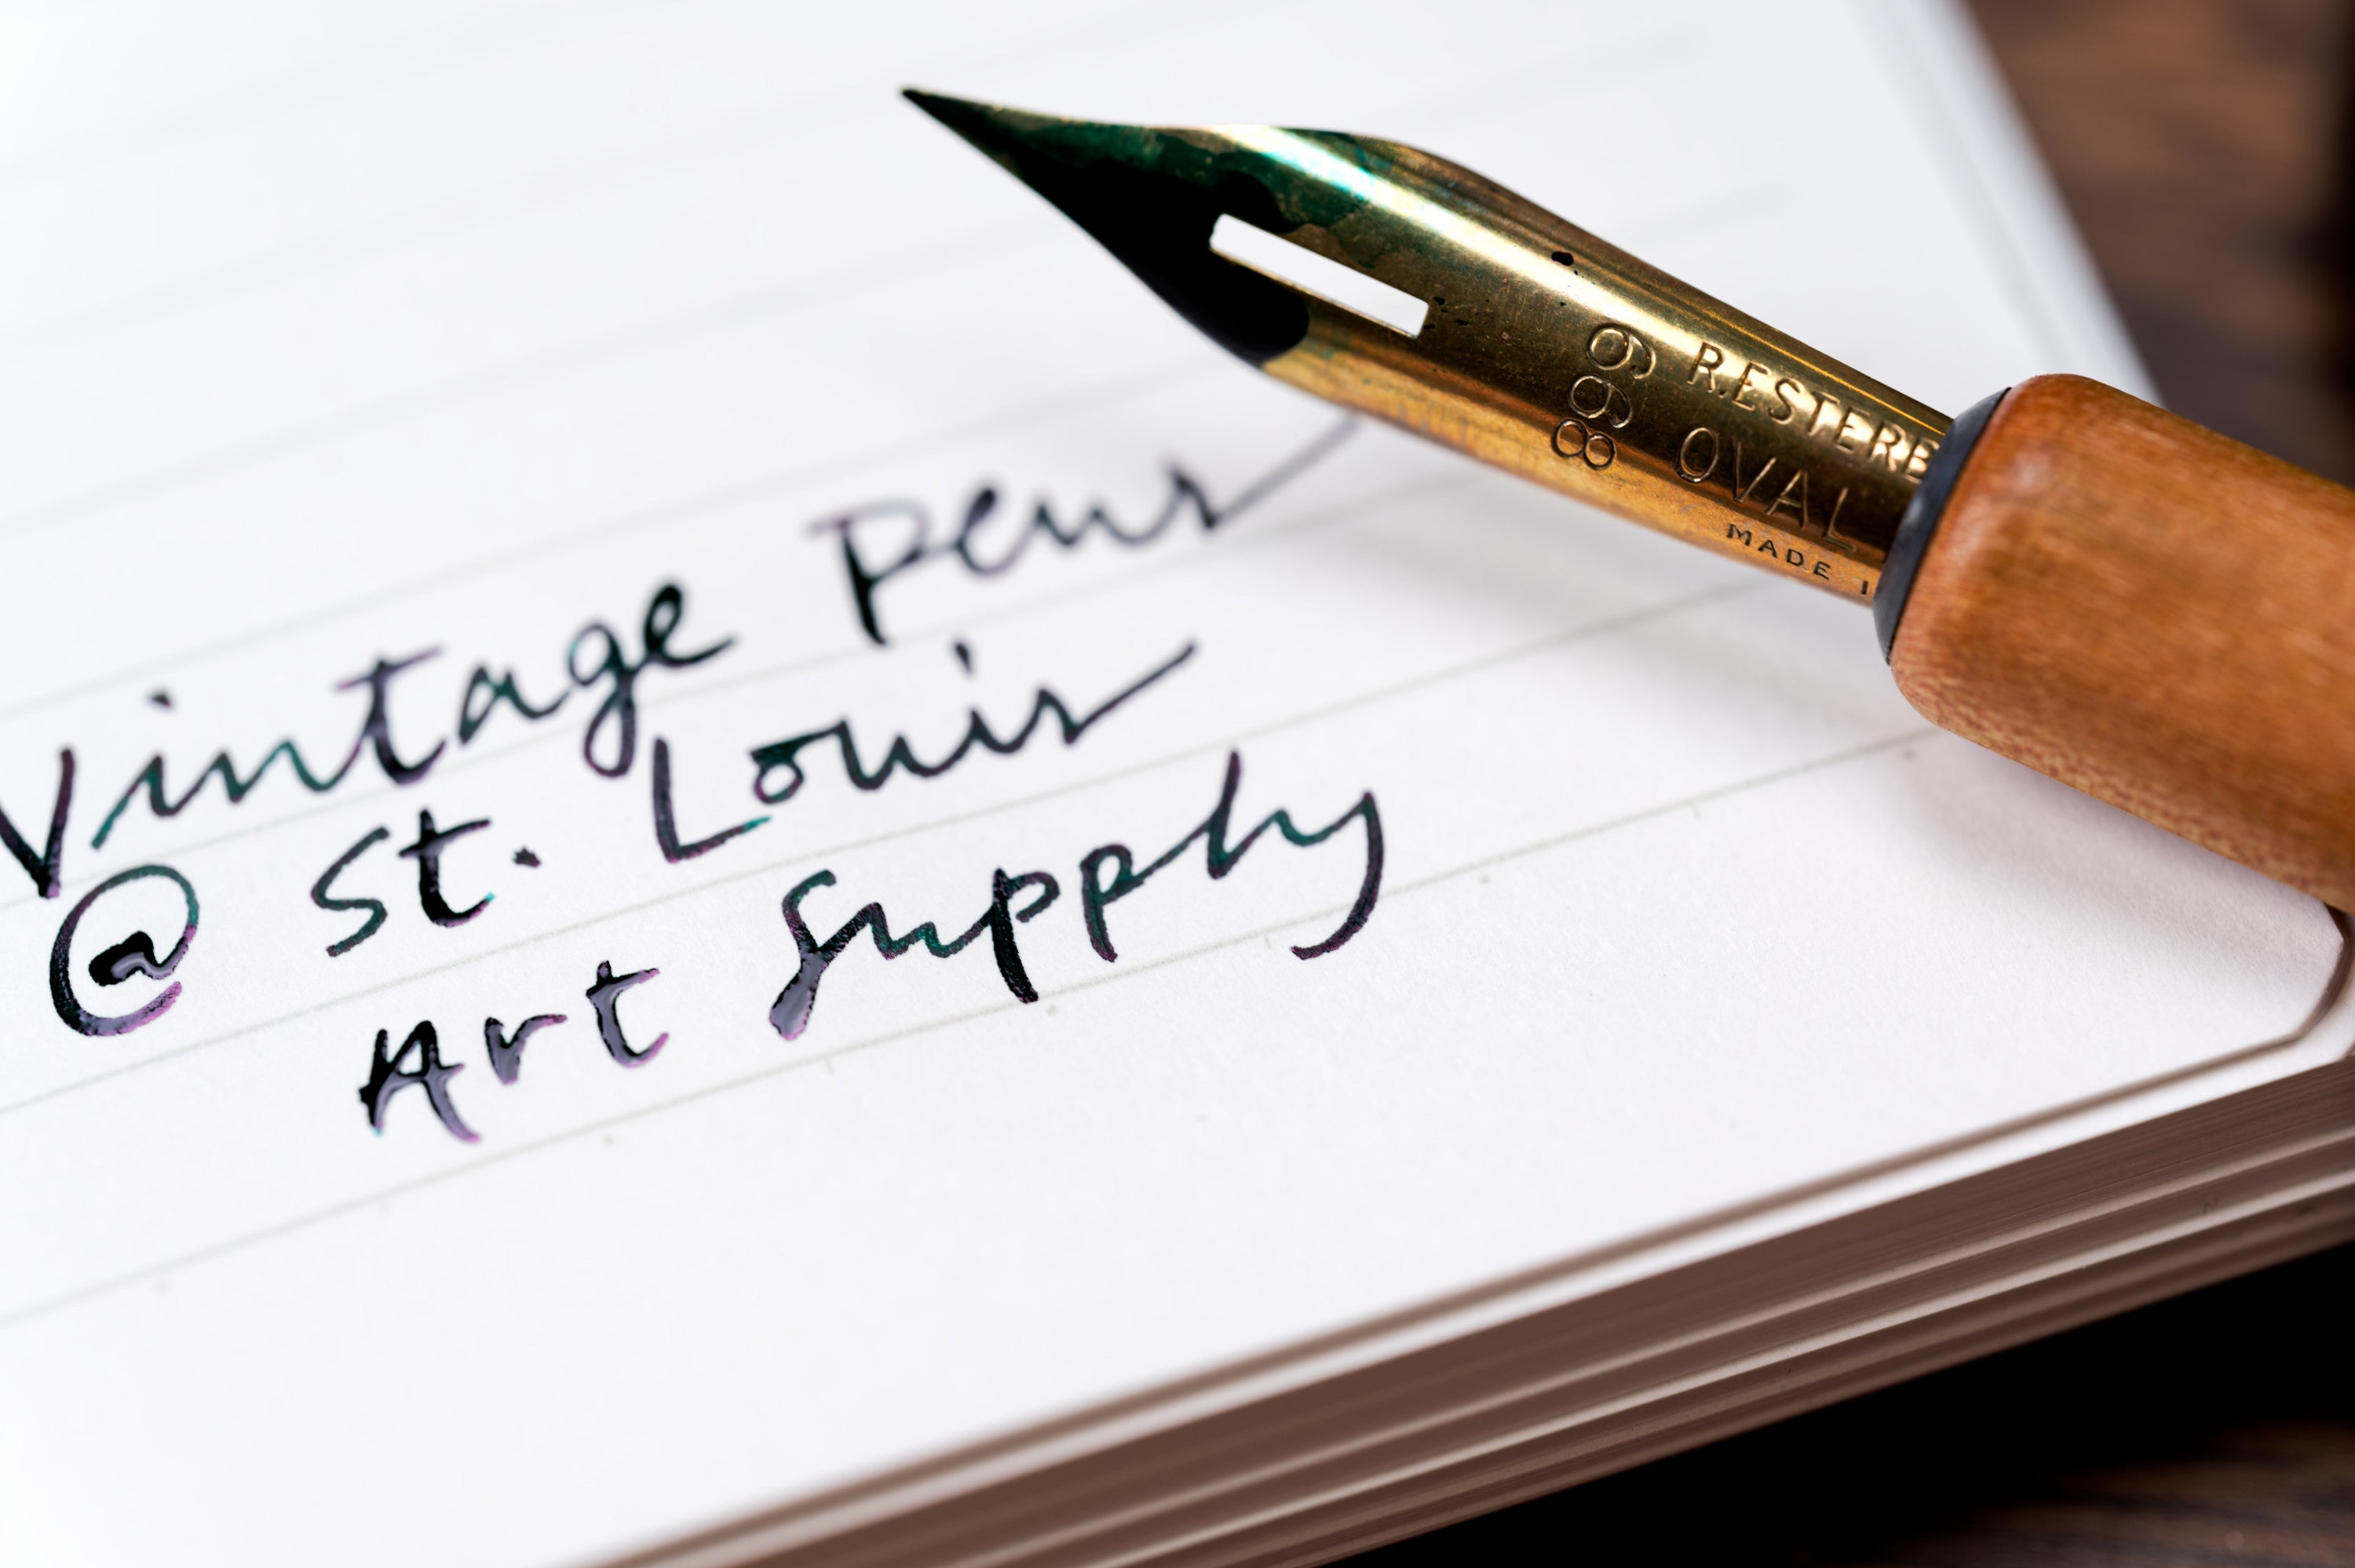 Vintage Pens
@ St. Louis
Art Supply
668
R.ESTERB
OVAL
MADE I